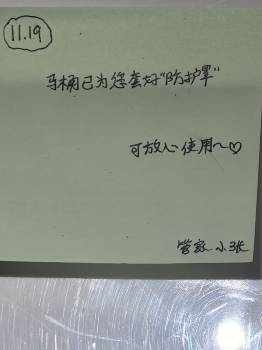 11.19
马桶已为您套好“防护罩”
可放心使用~♡
管家 小张